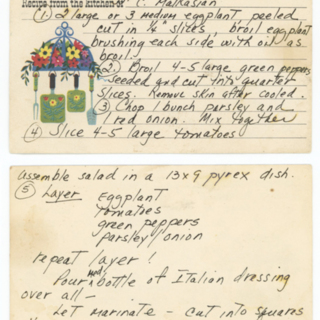 Recipe from the kitchen of C. Malkasian
① 2 large or 3 medium eggplant, peeled
cut in ¼" slices, broil eggplant
brushing each side with oil as
broil.
② Broil 4-5 large green peppers
seeded and cut into quarter
slices. Remove skin after cooled.
③ Chop 1 bunch parsley and
1 red onion. Mix together
④ Slice 4-5 large tomatoes
Assemble salad in a 13x9 pyrex dish.
⑤ Layer Eggplant
tomatoes
green peppers
parsley/onion
repeat layer!
Pour bottle of Italian dressing
over all-
Let marinate - cut into squares